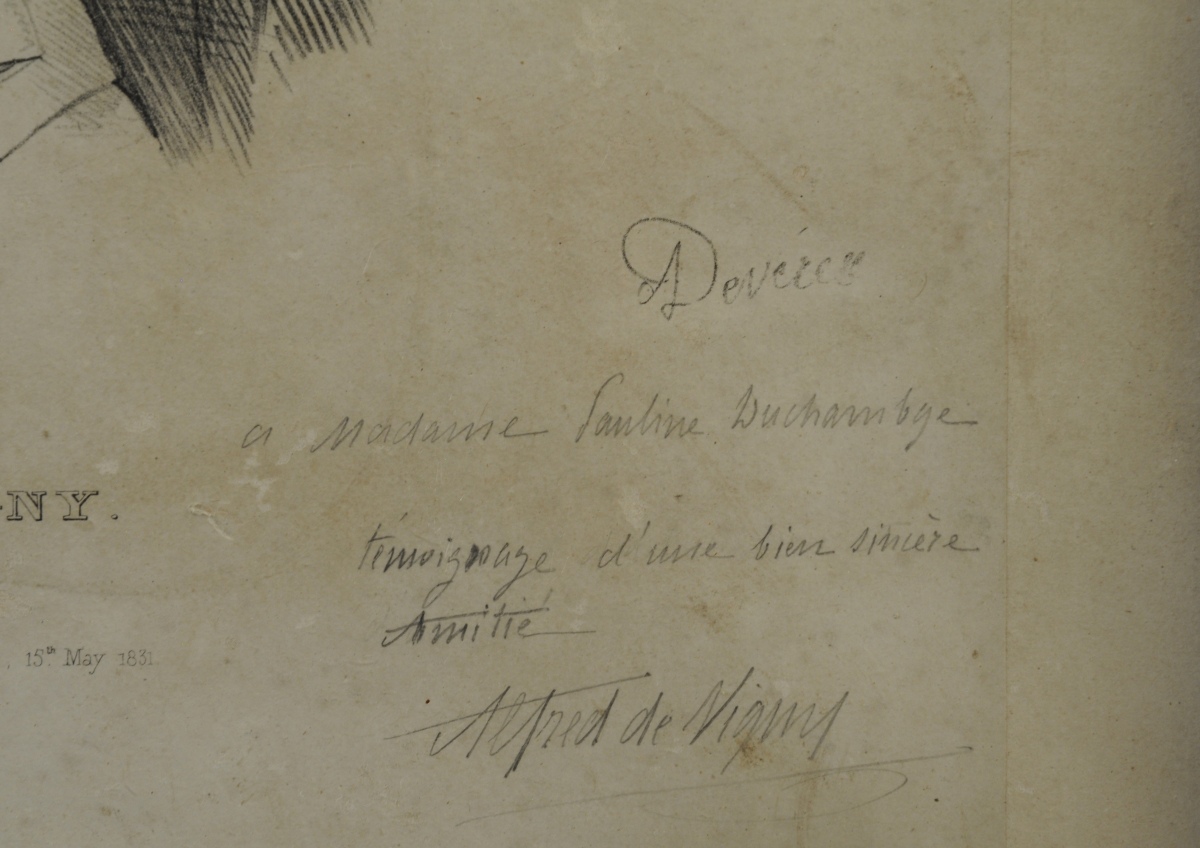 A Devéria
a Madame Pauline Duchambge
NY.
témoignage d'une bien sincère
Amitié
, 15.th May 1831
Alfred de Vigny